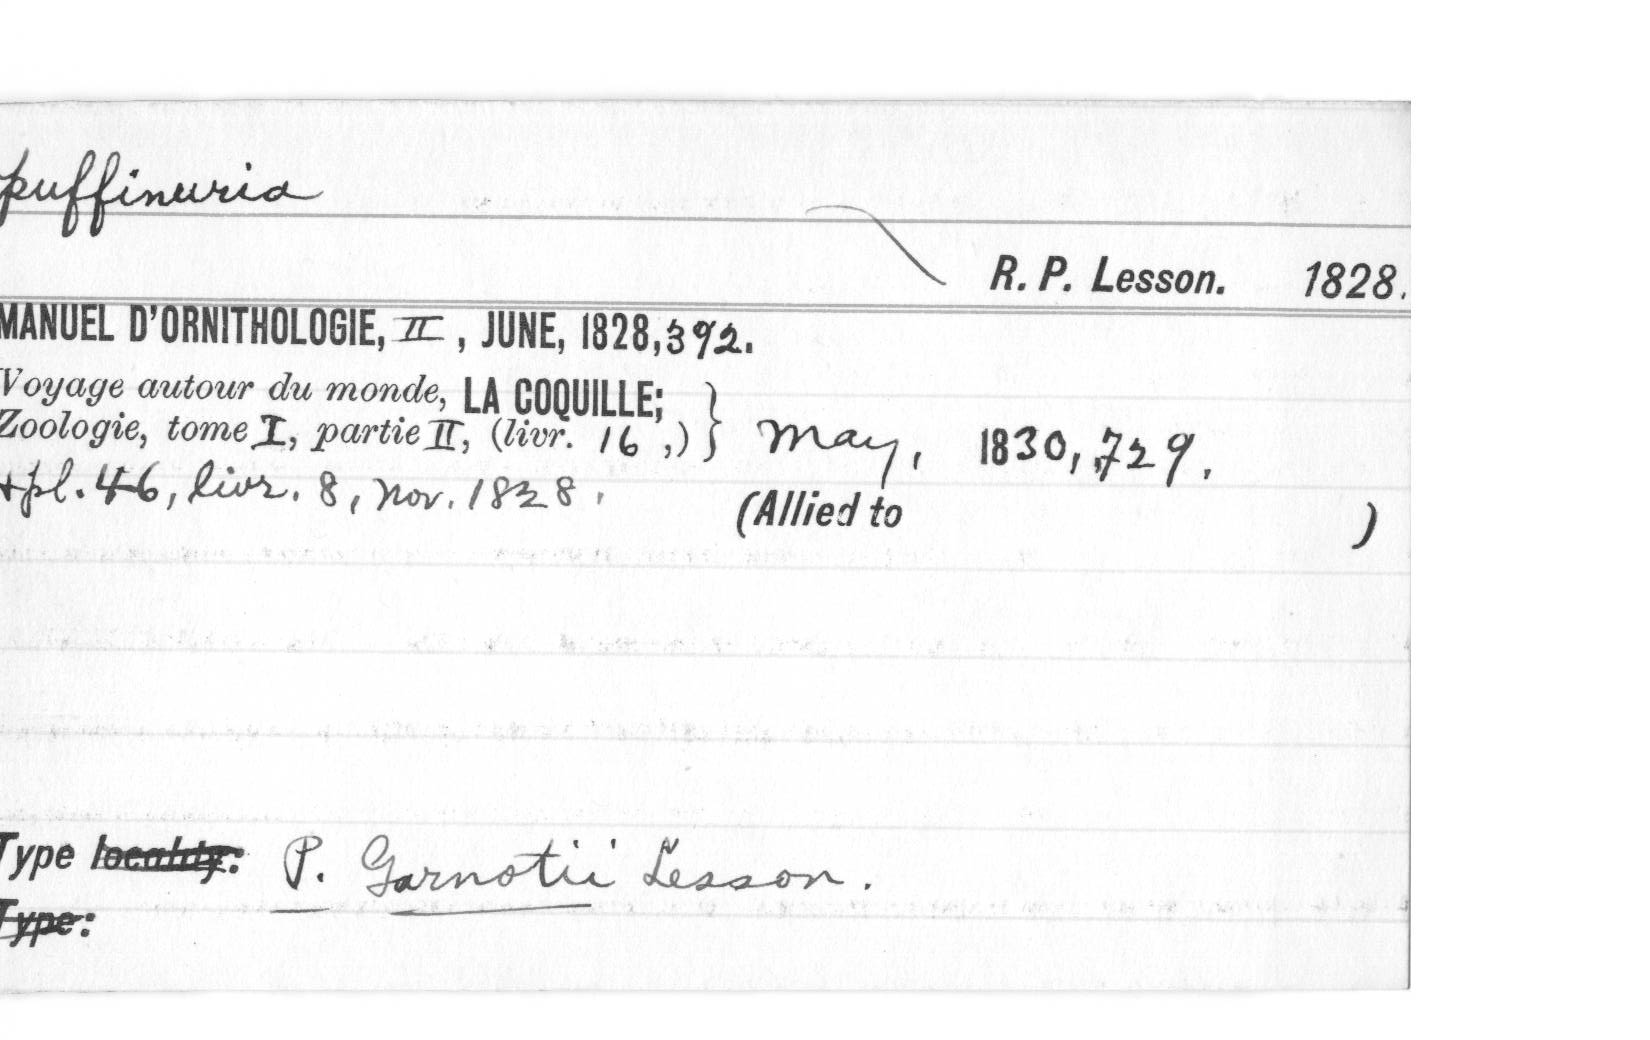 puffinuria
R. P. Lesson. 1828.
MANUEL D'ORNITHOLOGIE, II, JUNE, 1828, 392.
Voyage autour du monde, LA COQUILLE;
Zoologie, tome I, partie II, (livr. 16,) } May, 1830, 729.
+pl. 46, livr. 8, Nov. 1828.
(Allied to )
Type locality: P. Garnotii Lesson.
Type: